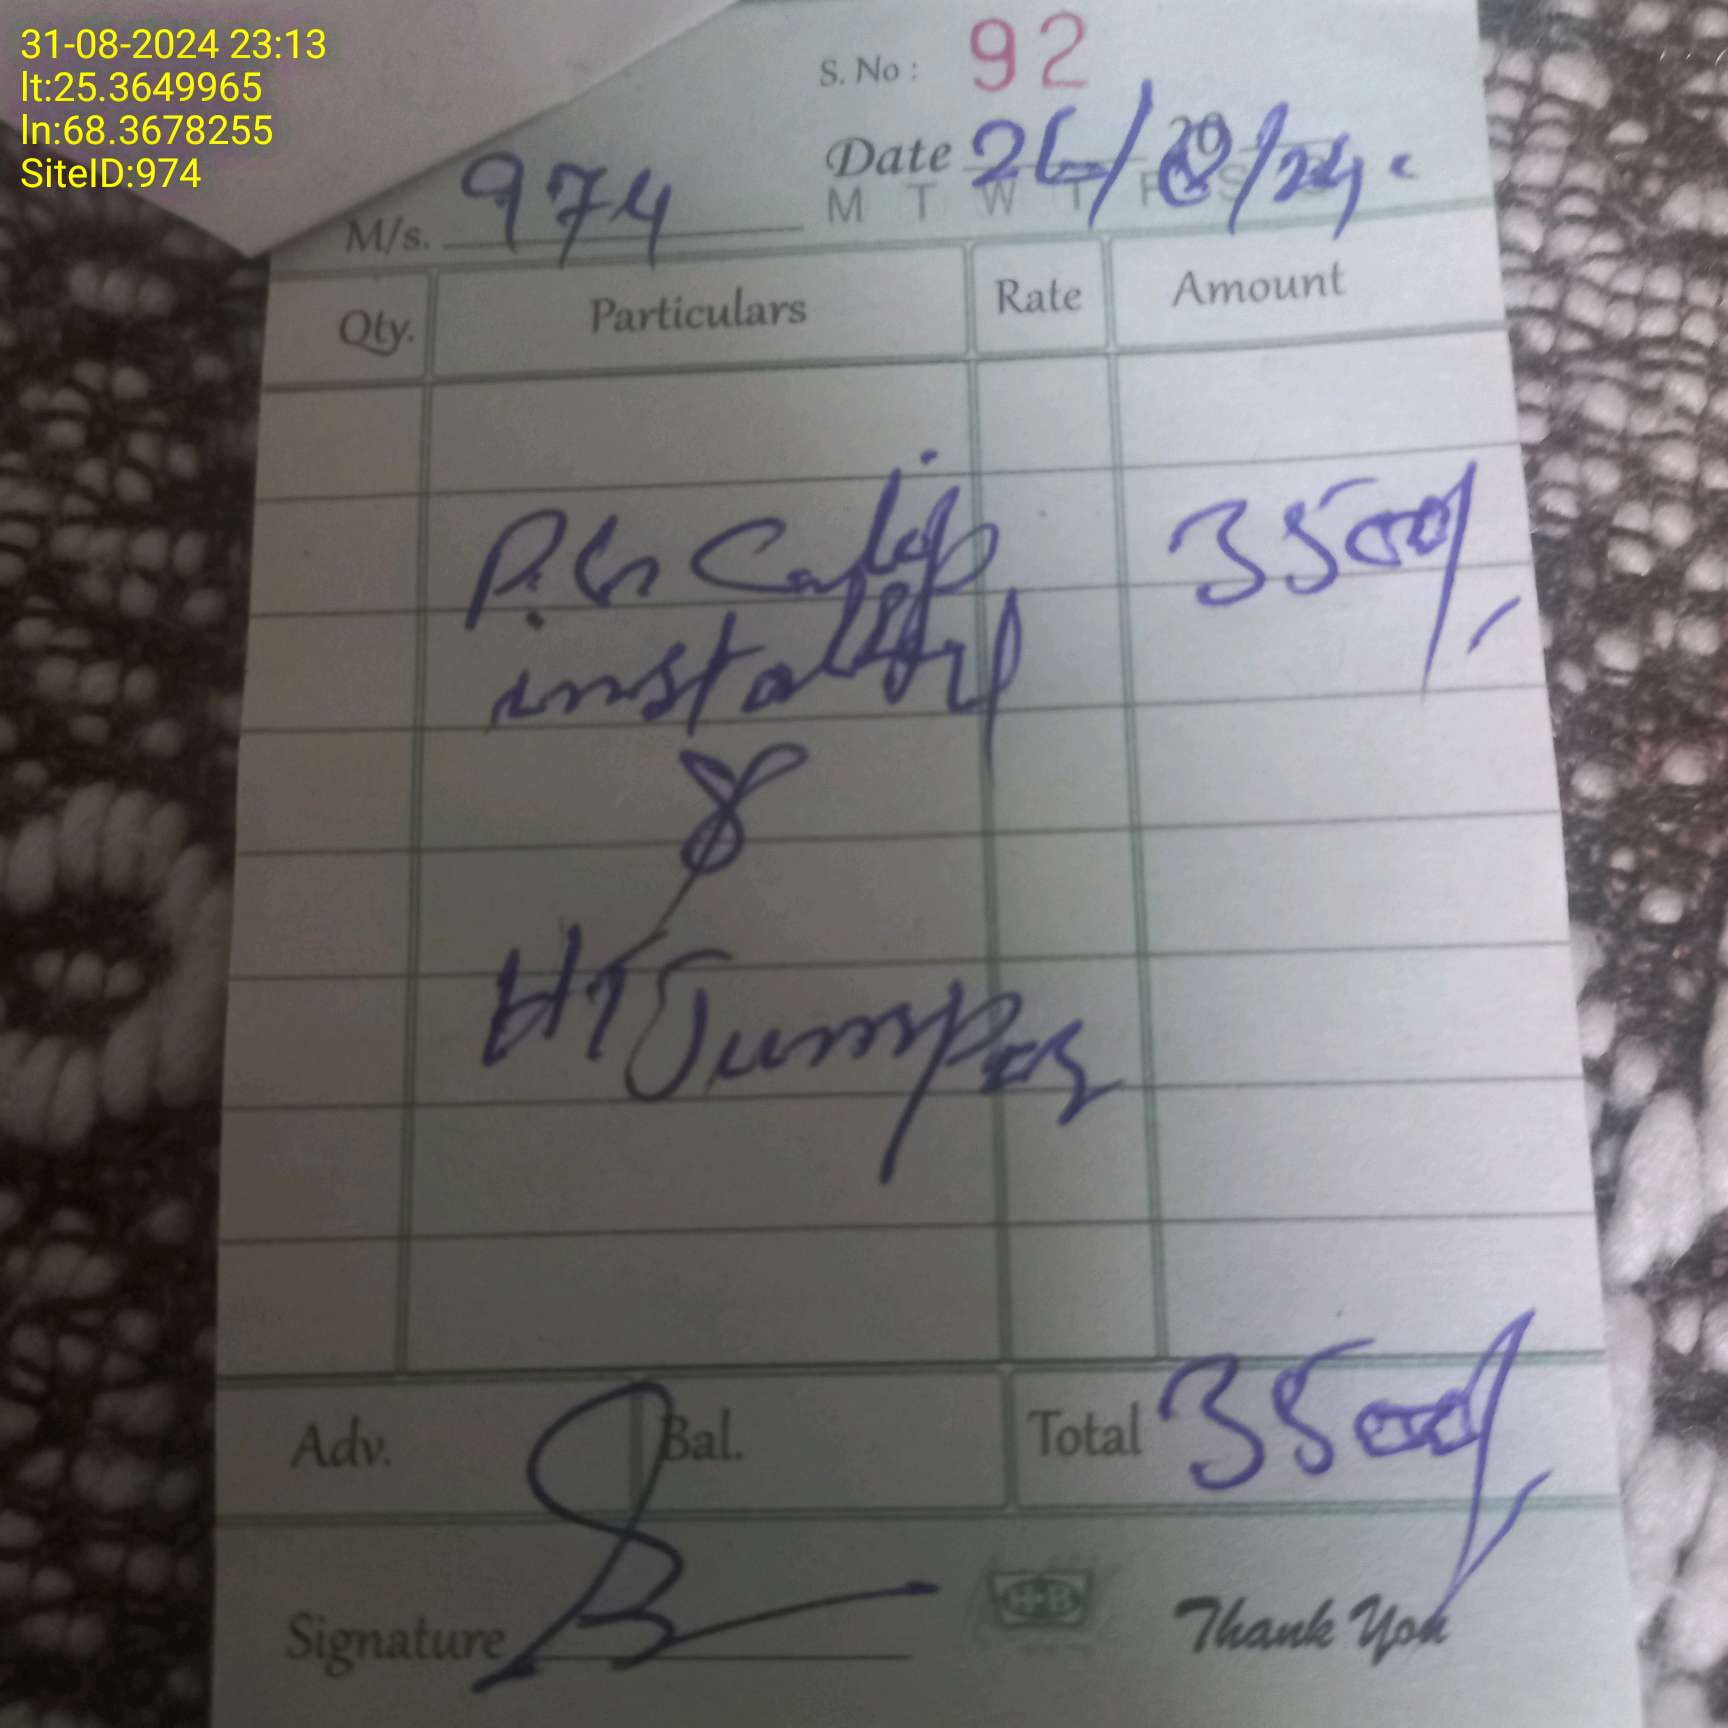 31-08-2024 23:13
lt:25.3649965
ln:68.3678255
SiteID:974
S. No : 92
Date 26/8/24.
M T W T F S
M/s. 974
Qty. Particulars Rate Amount
3500/-
install
&
HT Jumper
Adv. Bal. Total 3500/-
Signature
H-B
Thank You